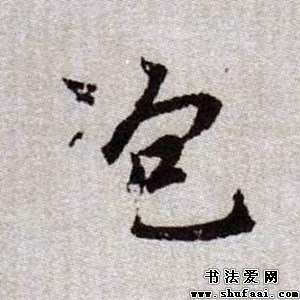 泡
书法爱网
www.shufaai.com